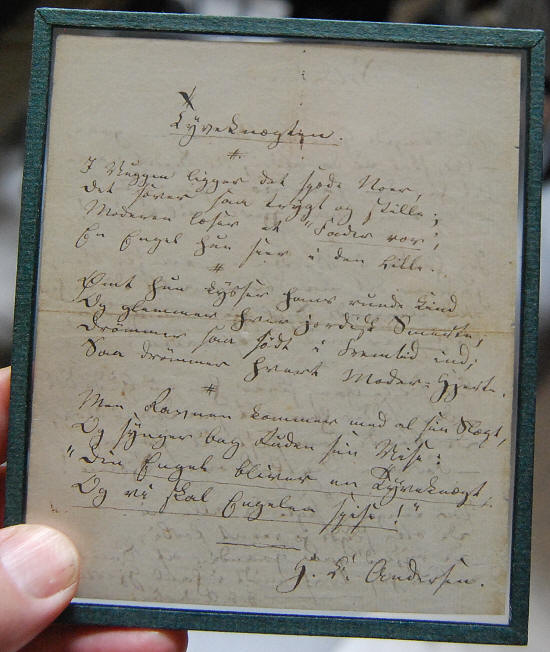 Tyveknægten.
I Vuggen ligger det spæde Noer,
Det sover saa trygt og stille;
Moderen læser et "Fader vor",
En Engel hun seer i den Lille.
Ømt hun kysser hans runde Kind
Og glemmer hver jordisk Smerte,
Drømmer saa sødt i Fremtid ind;
Saa drømmer hvert Moder-Hjerte.
Men Ravnen kommer med al sin Slægt,
Og synger bag Ruden sin Vise:
"Din Engel bliver en Tyveknægt,
Og vi skal Engelen spise!"
H. C. Andersen.